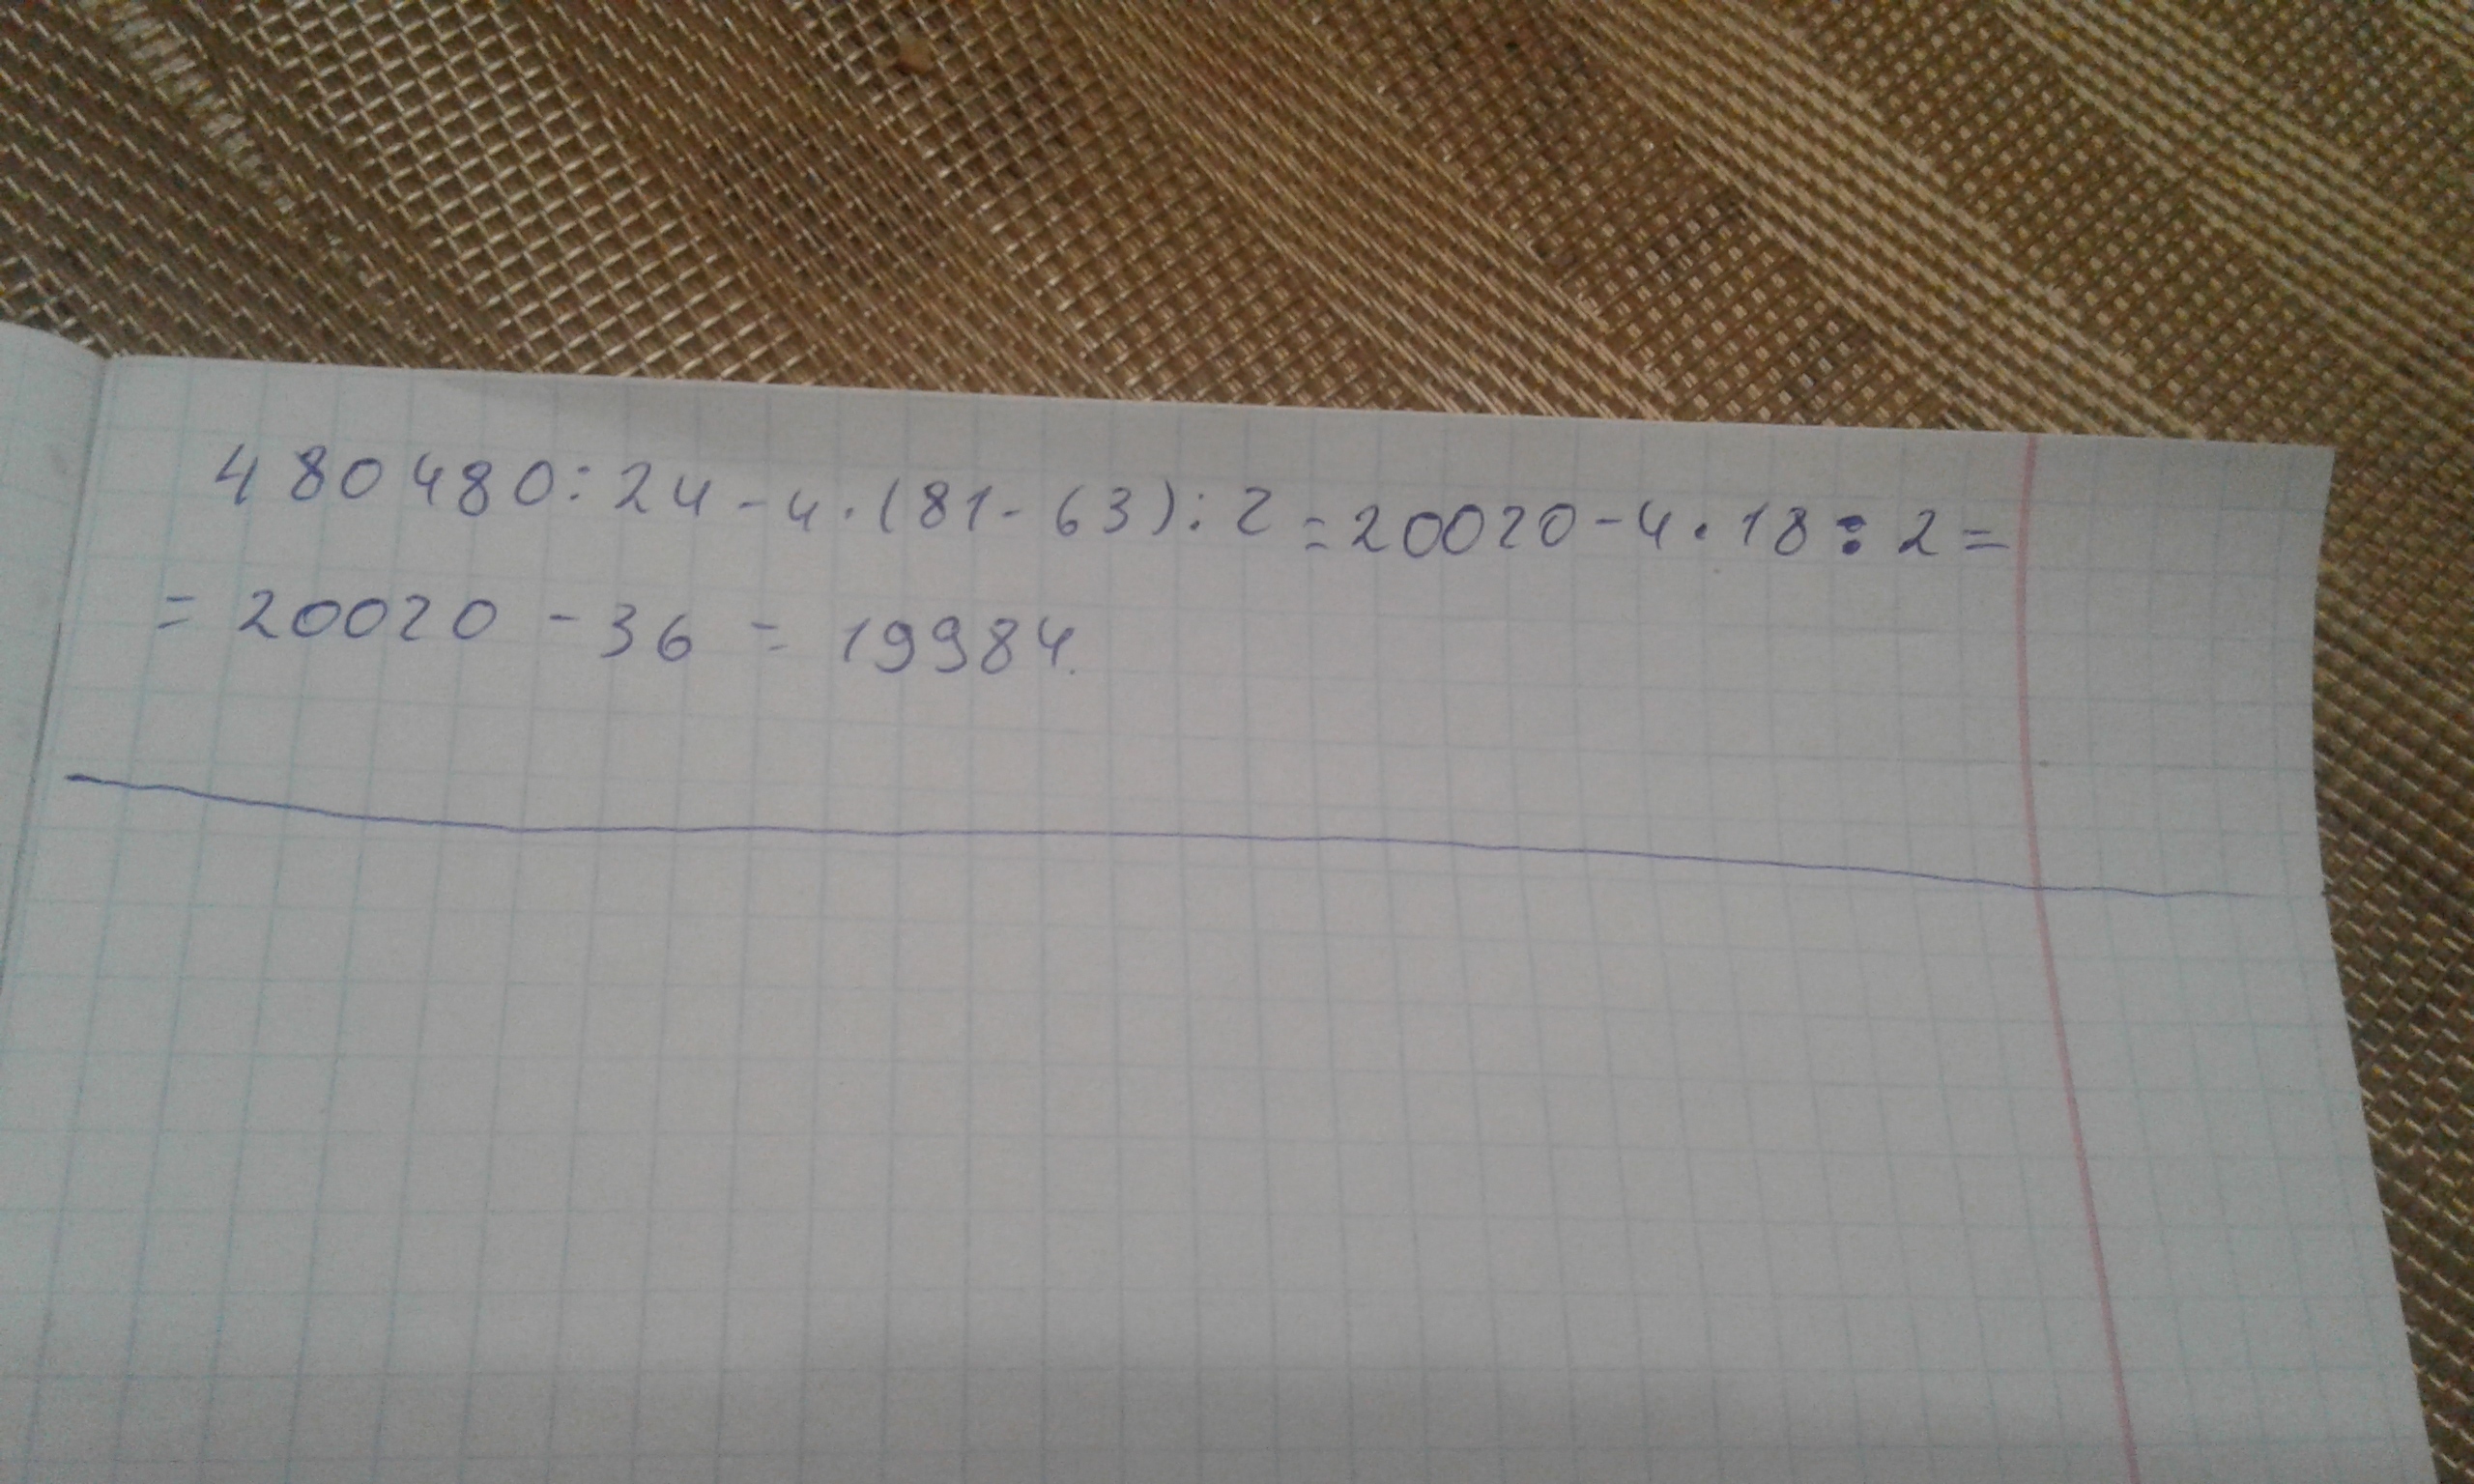 480480:24-4·(81-63):2=20020-4·18:2=
=20020-36=19984.